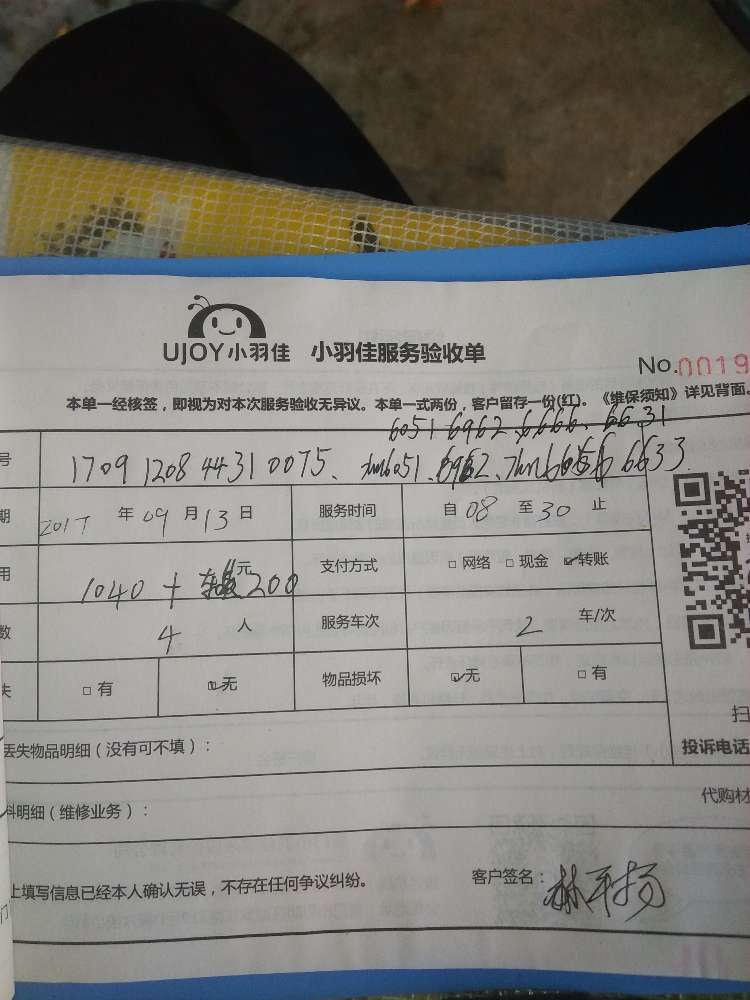 UJOY小羽佳 小羽佳服务验收单
No.0019
本单一经核签，即视为对本次服务验收无异议。本单一式两份，客户留存一份(红)。《维保须知》详见背面。
6051 6962、6666、6631
号 1709 1208 4431 0075、6051、6962、6633
期 2017 年 09 月 13 日 服务时间 自 08 至 30 止
用 1040 + 200 元 支付方式 □网络 □现金 ☑转账
数 4 人 服务车次 2 车/次
失 □有 ☑无 物品损坏 ☑无 □有
扫
丢失物品明细（没有可不填）： 投诉电话
料明细（维修业务）： 代购材
上填写信息已经本人确认无误，不存在任何争议纠纷。 客户签名：